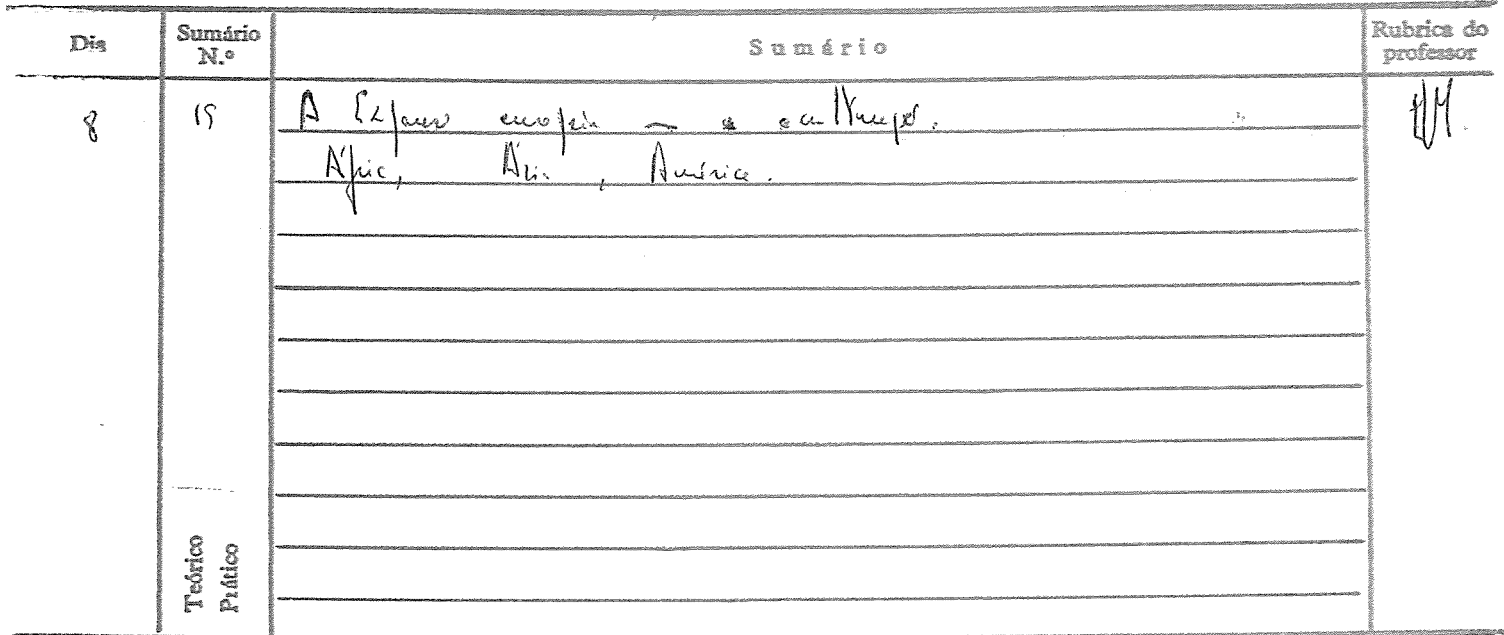 Dia
Sumário N.º
Sumário
Rubrica do professor
8
15
A Expansão europeia - a
África, Ásia, América.
Teórico
Prático